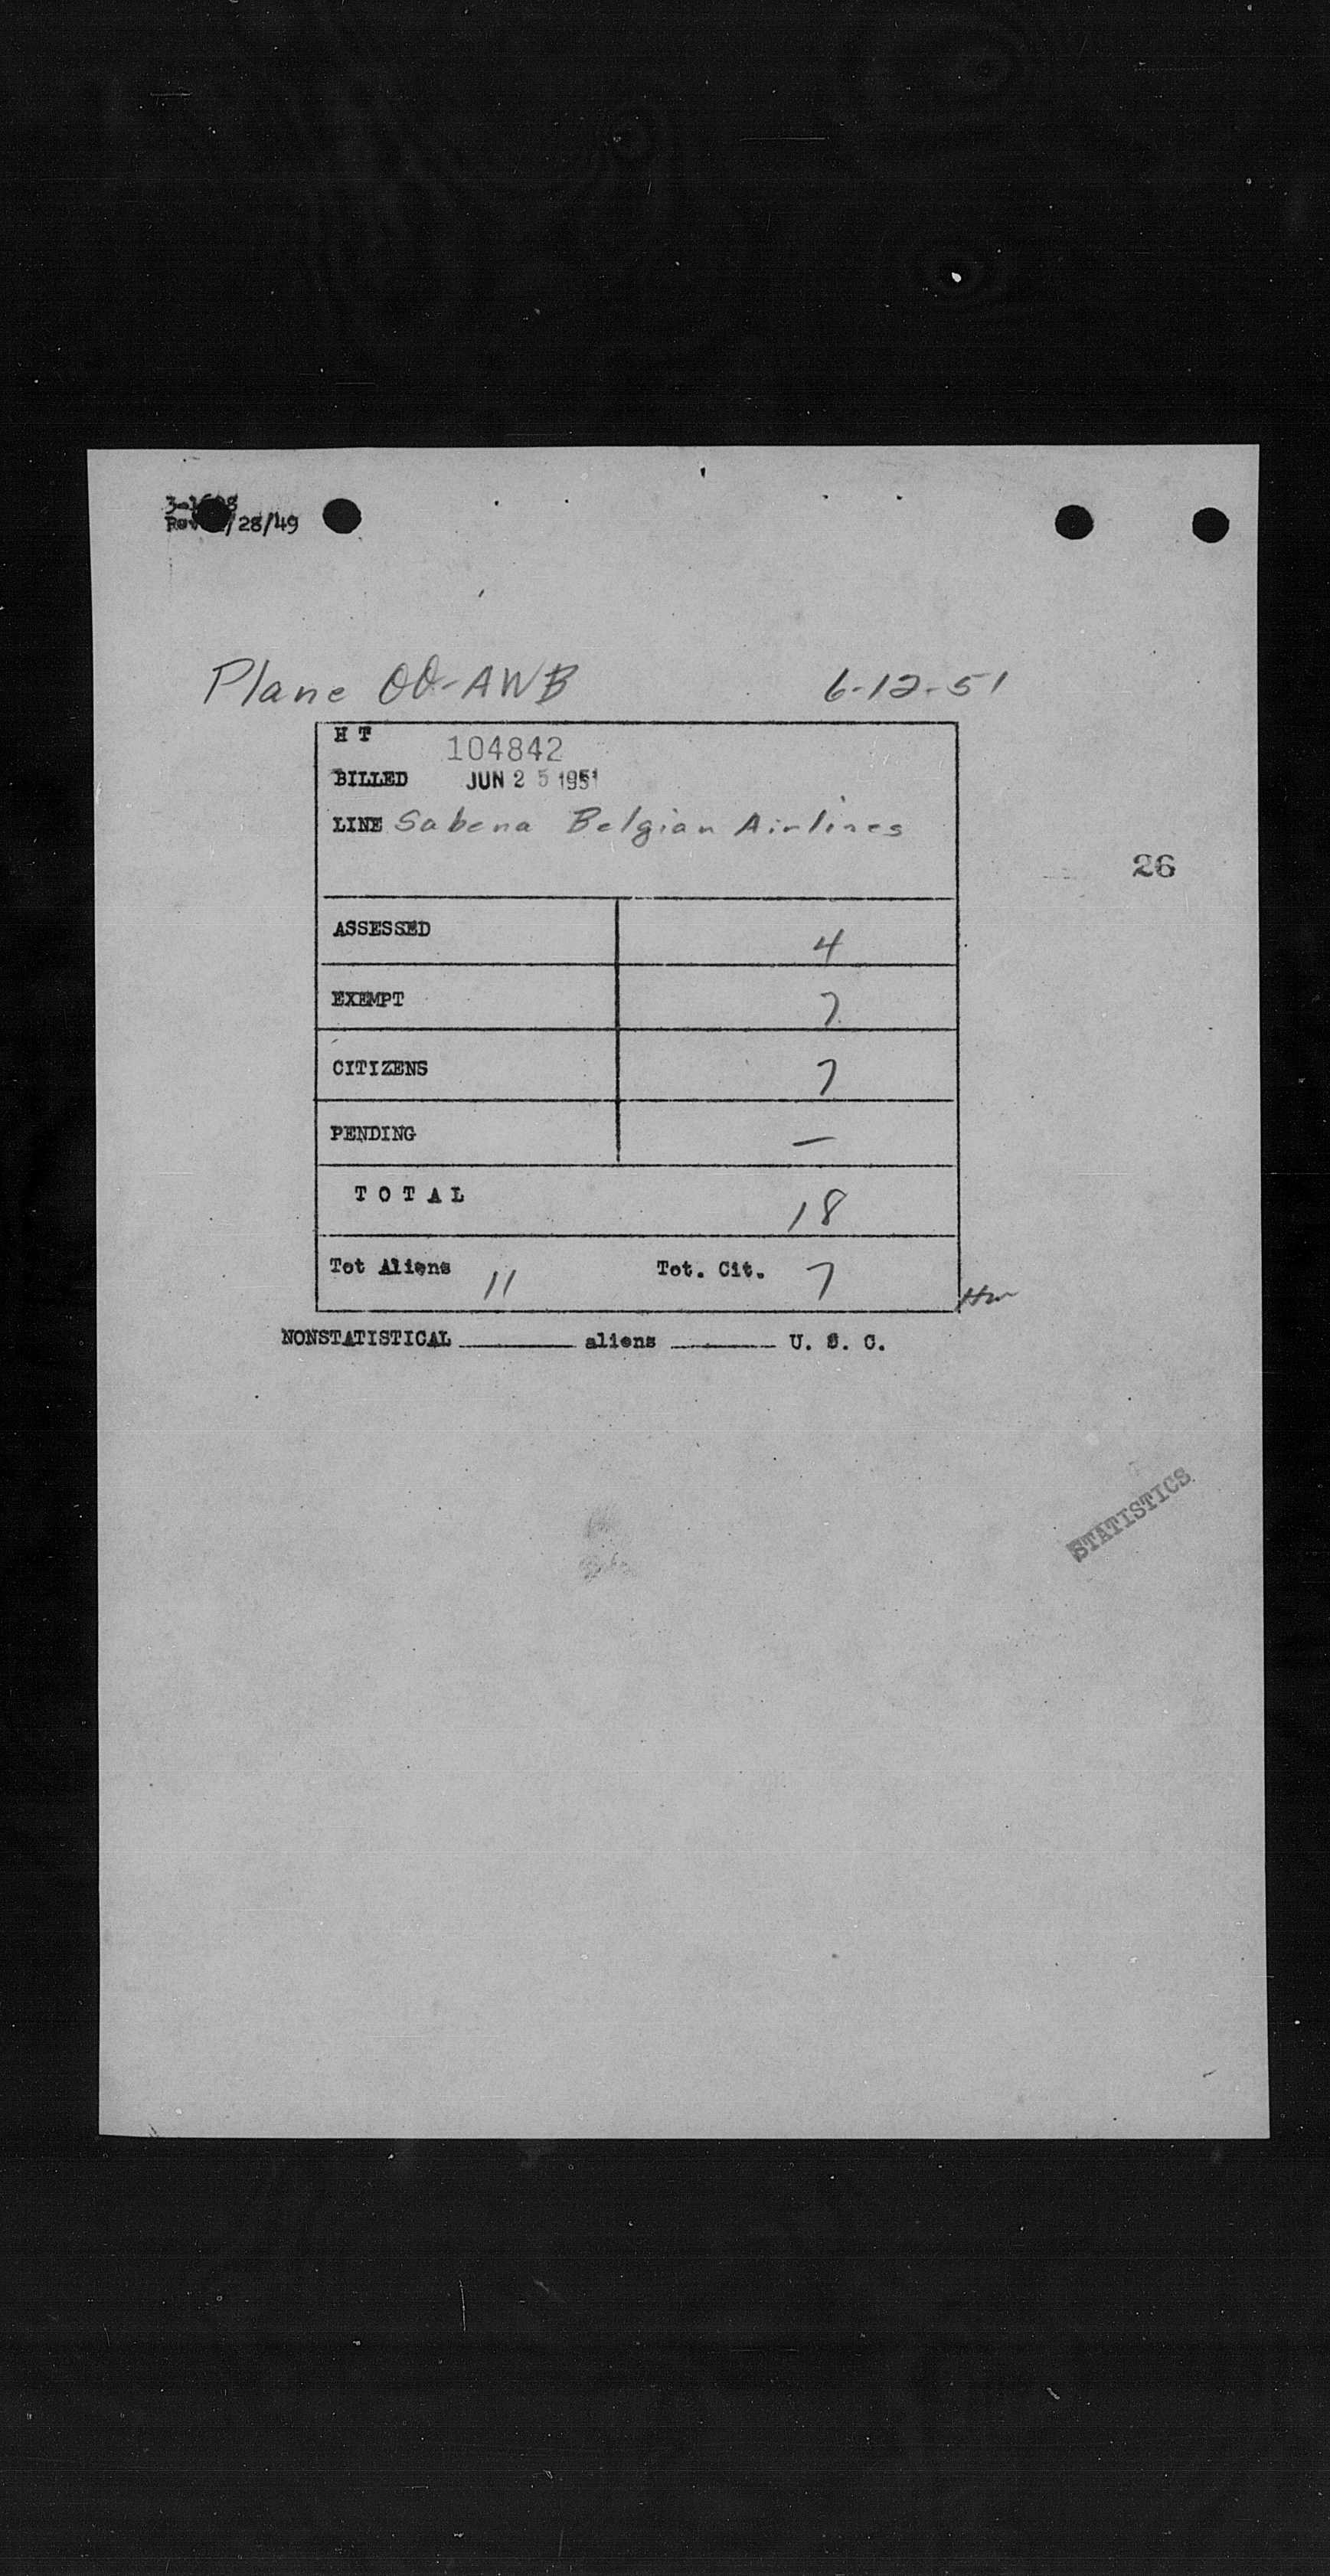 /28/49
Plane OO-AWB 6-12-51
H T 104842
BILLED JUN 25 1951
LINE Sabena Belgian Airlines
26
ASSESSED 4
EXEMPT 7
CITIZENS 7
PENDING —
TOTAL 18
Tot Aliens 11 Tot. Cit. 7
NONSTATISTICAL ____ aliens ____ U. S. C.
STATISTICS